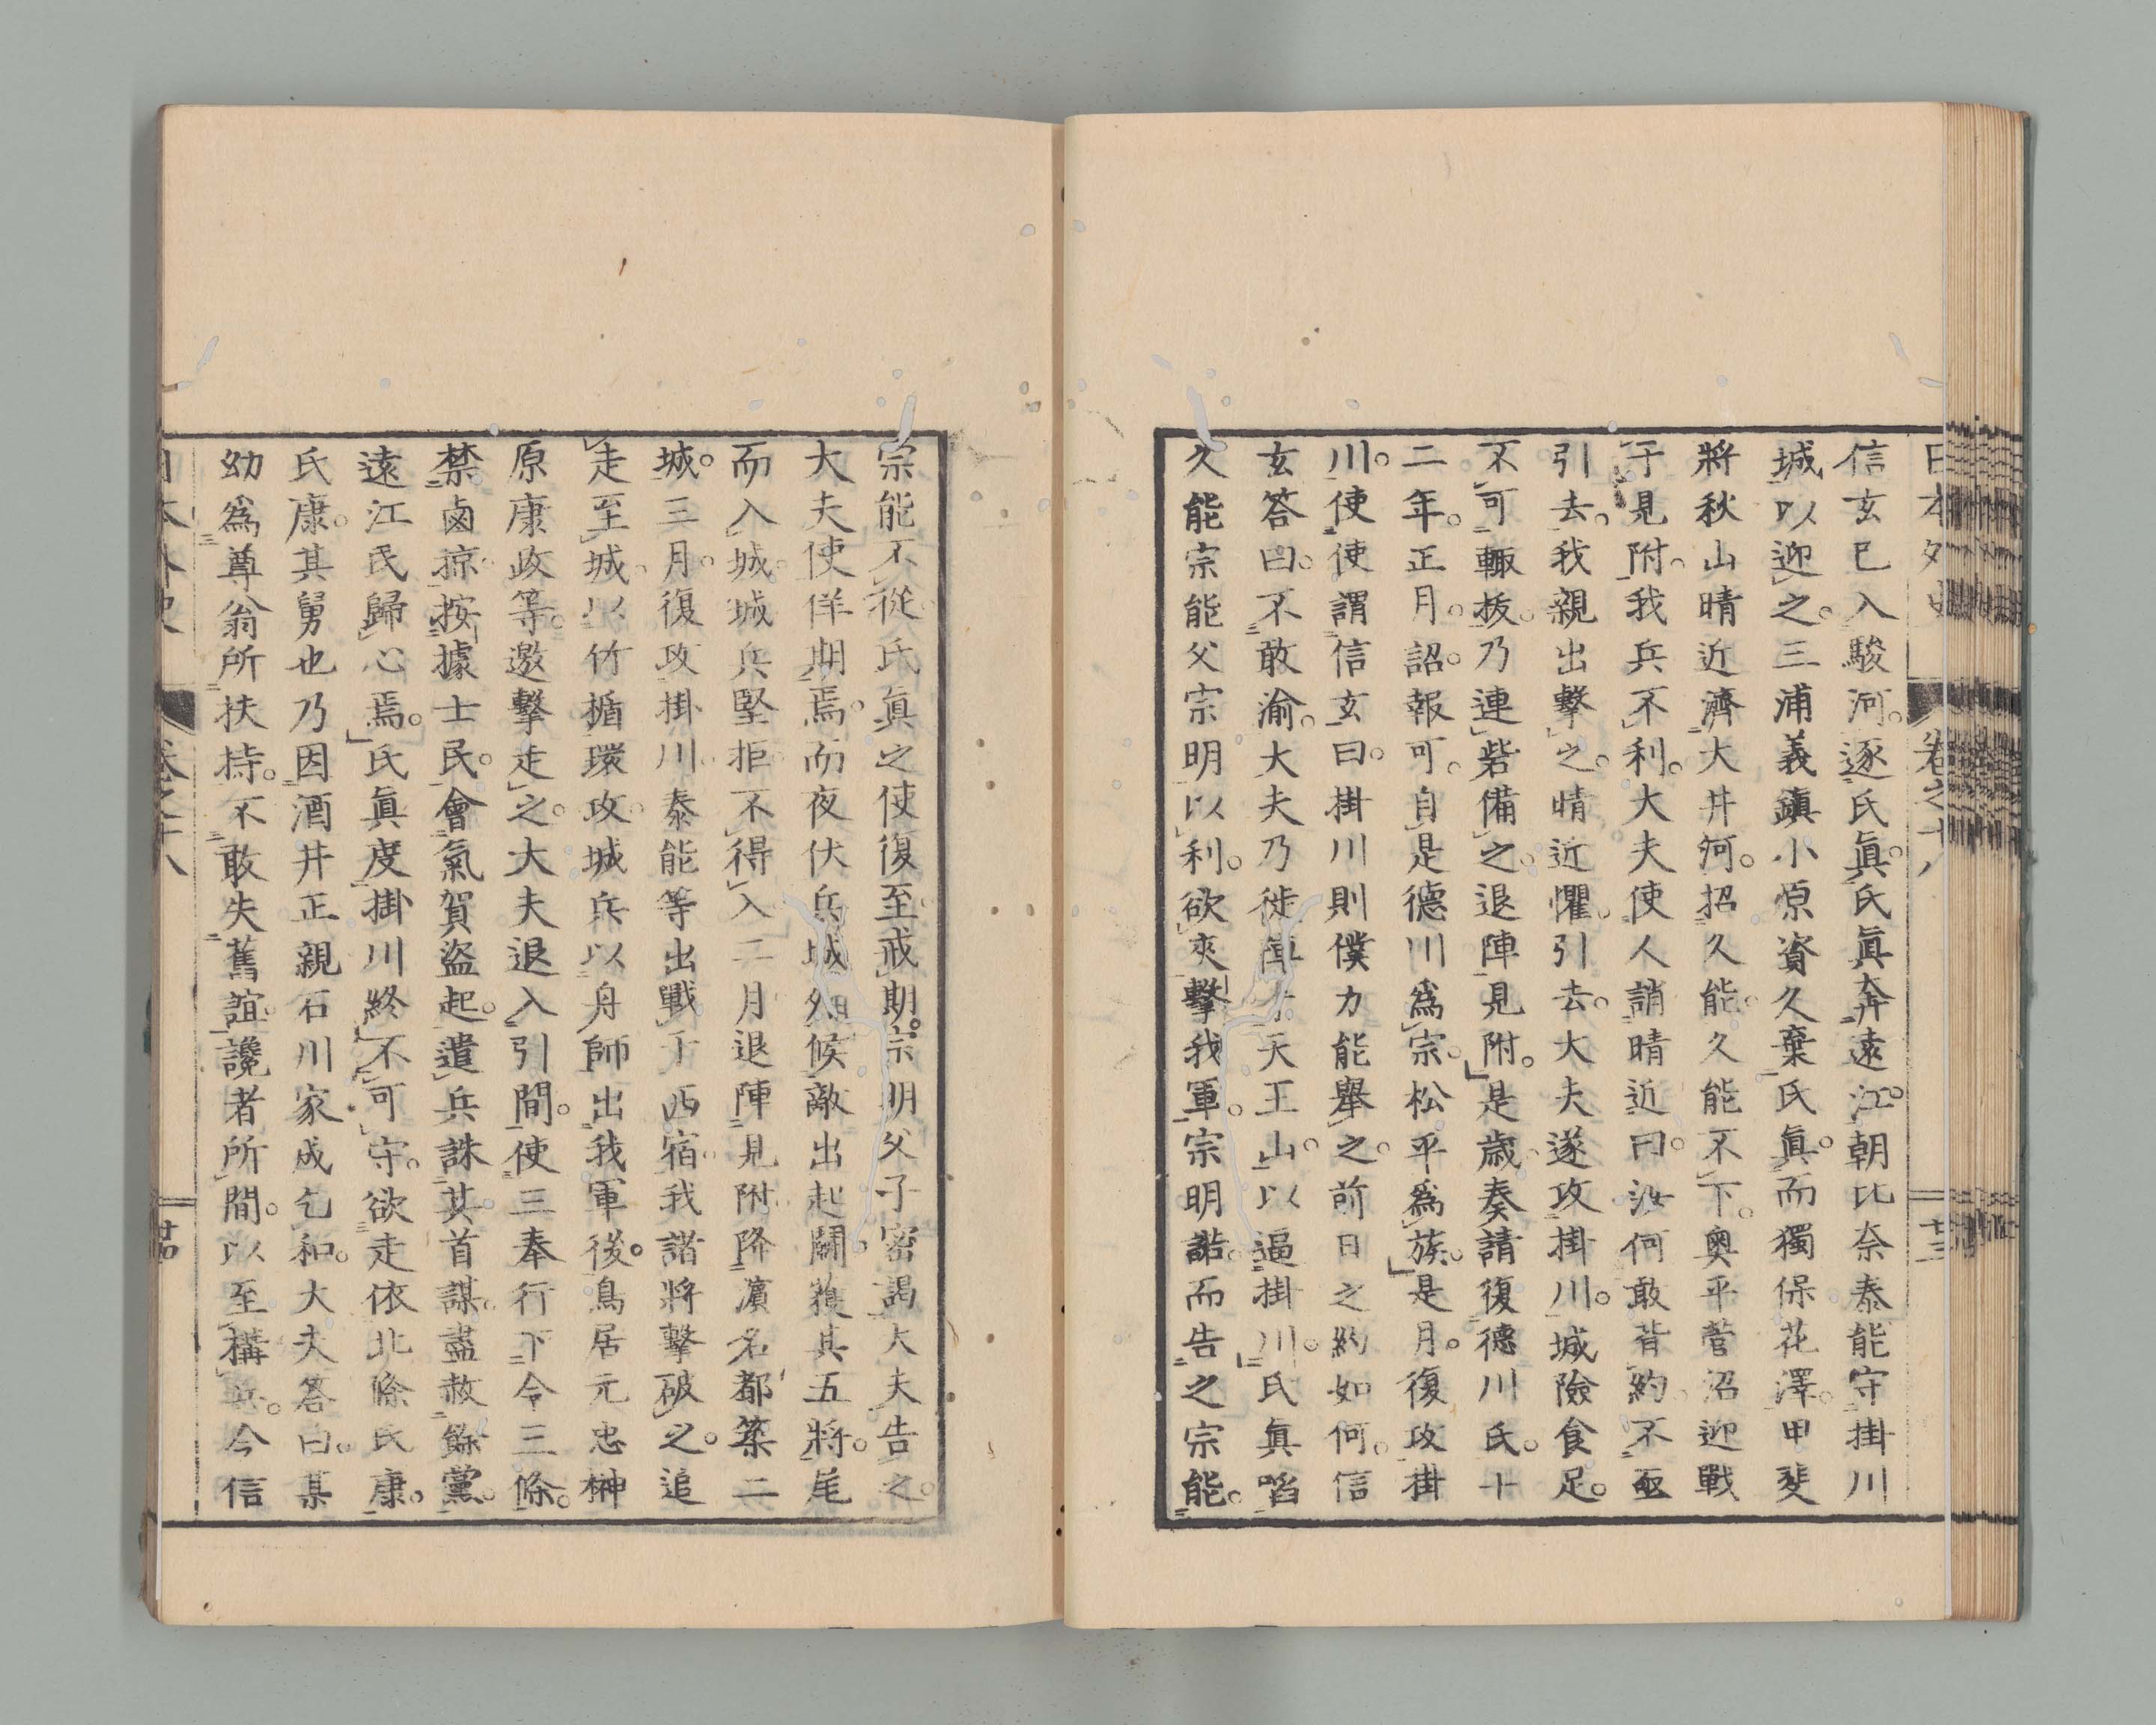 信玄已入駿河。逐氏眞。氏眞奔遠江。朝比奈泰能守掛川
城以迎之。三浦義鎭小原資久棄氏眞。而獨保花澤。甲斐
將秋山晴近濟大井河。招久能。久能不下。奧平菅沼迎戰
于見附。我兵不利。大夫使人誚晴近曰。汝何敢背約不亟
引去。我親出擊之。晴近懼。引去。大夫遂攻掛川。城險食足。
不可輙拔。乃連砦備之。退陣見附。是歲。奏請復德川氏。十
二年。正月。詔。報可。自是德川爲宗。松平爲族。是月。復攻掛
川。使使謂信玄曰。掛川則僕力能舉之。前日之約如何。信
玄答曰。不敢渝。大夫乃徙陣于天王山。以逼掛川。氏眞啗
久能宗能父宗明以利。欲夾擊我軍。宗明諾而告之宗能。
宗能不從。氏眞之使復至戒期。宗明父子密謁大夫告之。
大夫使佯期焉。而夜伏兵城外候敵出起鬭。獲其五將。尾
而入城。城兵堅拒。不得入。二月退陣見附。降濱名都築二
城。三月。復攻掛川。泰能等出戰于西宿。我諸將擊破之。追
走至城。以竹楯環攻。城兵以舟師出我軍後。鳥居元忠榊
原康政等。邀擊走之。大夫退入引間。使三奉行下令三條。
禁鹵掠。按據士民。會氣賀盜起。遣兵誅其首謀。盡赦餘黨。
遠江民歸心焉。氏眞度掛川終不可守。欲走依北條氏康。
氏康。其舅也乃因酒井正親石川家成乞和。大夫答曰。某
幼爲尊翁所扶持。不敢失舊誼。讒者所間。以至構兵。今信
日本外史 卷之十八 廿三
日本外史 卷之十八 廿四